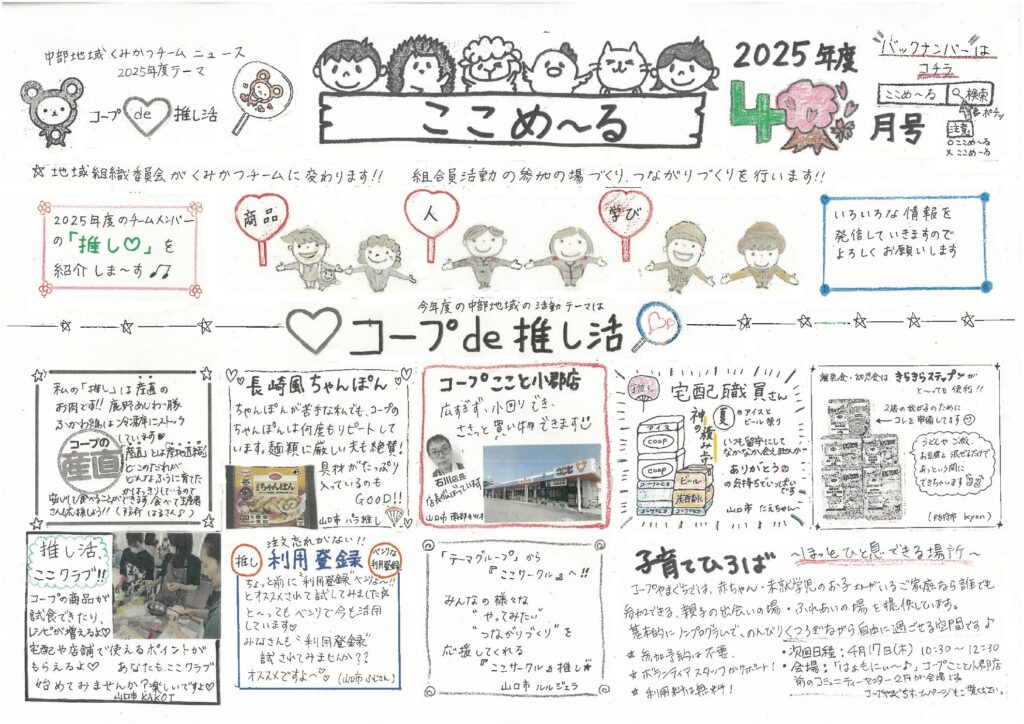 中部地域くみかつチーム ニュース
2025年度テーマ
コープ de 推し活
ここめ〜る
2025年度
4月号
バックナンバーは
コチラ
ここめ〜る 検索
注意
○ここめ〜る
×ここめーる
☆地域組織委員会がくみかつチームに変わります!! 組合員活動の参加の場づくり、つながりづくりを行います!!
2025年度のチームメンバー
の「推し♡」を
紹介しま〜す♪♪
商品
人
学び
いろいろな情報を
発信していきますので
よろしくお願いします
今年度の中部地域の活動テーマは
コープde推し活
私の「推し」は産直の
お肉です!! 鹿野あじわい豚
ふかわ鶏は冷凍庫にストック
しています♥
コープの
産直
「産直」とは産地直結
どこのだれが
どんなふうに育てた
かはっきりしているので
安心して食べることができます
長崎風ちゃんぽん
ちゃんぽんが苦手な私でも、コープの
ちゃんぽんは何度もリピートして
います。麺類に厳しい夫も絶賛!
具材がたっぷり
入っているのも
GOOD!!
山口市 バラ推し
コープここと小郡店
広すぎず、小回りでき、
ささっと買い物できます
石川店長
店長がんばっています
宅配職員さん
神の積み方
夏のアイスと
ビール祭り
アイス
coop
coop
ビール
いつも留守にして
なかなか会えませんが
ありがとう
の気持ちでいっぱいです
山口市 たえちゃん
離乳食・幼児食は きらきらステップが
と〜っても便利!!
2歳の我が子のために
コレを準備してます
うどんやご飯、
お豆腐と混ぜるだけで
あっという間に
できちゃいます
(防府市 kyon)
推し活、
ここクラブ!!
コープの商品が
試食できたり、
レシピが増えるよ♡
宅配や店舗で使えるポイントが
もらえるよ♡ あなたも、ここクラブ
始めてみませんか?楽しいですよ♡
山口市 KAKOT
注え忘れがない!!
推し 利用登録 ベンリな利用登録
ちょっと前に"利用登録"ベンリよ〜!!
とオススメされて試してみました
と〜ってもベンリで今も活用
しています♥
みなさんも"利用登録"
試されてみませんか??
オススメですよ〜♡
「テーマグループ」から
『ここサークル』へ!!
みんなの様々な
"やってみたい"
"つながりづくり"を
応援してくれる
『ここサークル』推し★
山口市 ルルジェラ
子育てひろば 〜ほっとひと息できる場所〜
コープやまぐちでは、赤ちゃん・未就学児のお子さんがいるご家庭なら誰でも
参加できる、親子の出会いの場・ふれあいの場を提供しています。
基本的にノンプログラムで、のんびりくつろぎながら自由に過ごせる空間です♪
★参加予約は不要
★ボランティアスタッフがサポート!
★利用料は無料!
・次回日程:4月17日(木) 10:30〜12:30
・会場:「はぁもにぃ〜♪」コープここと小郡店
前のコミュニティーセンター
コープやまぐちホームページもご覧ください。